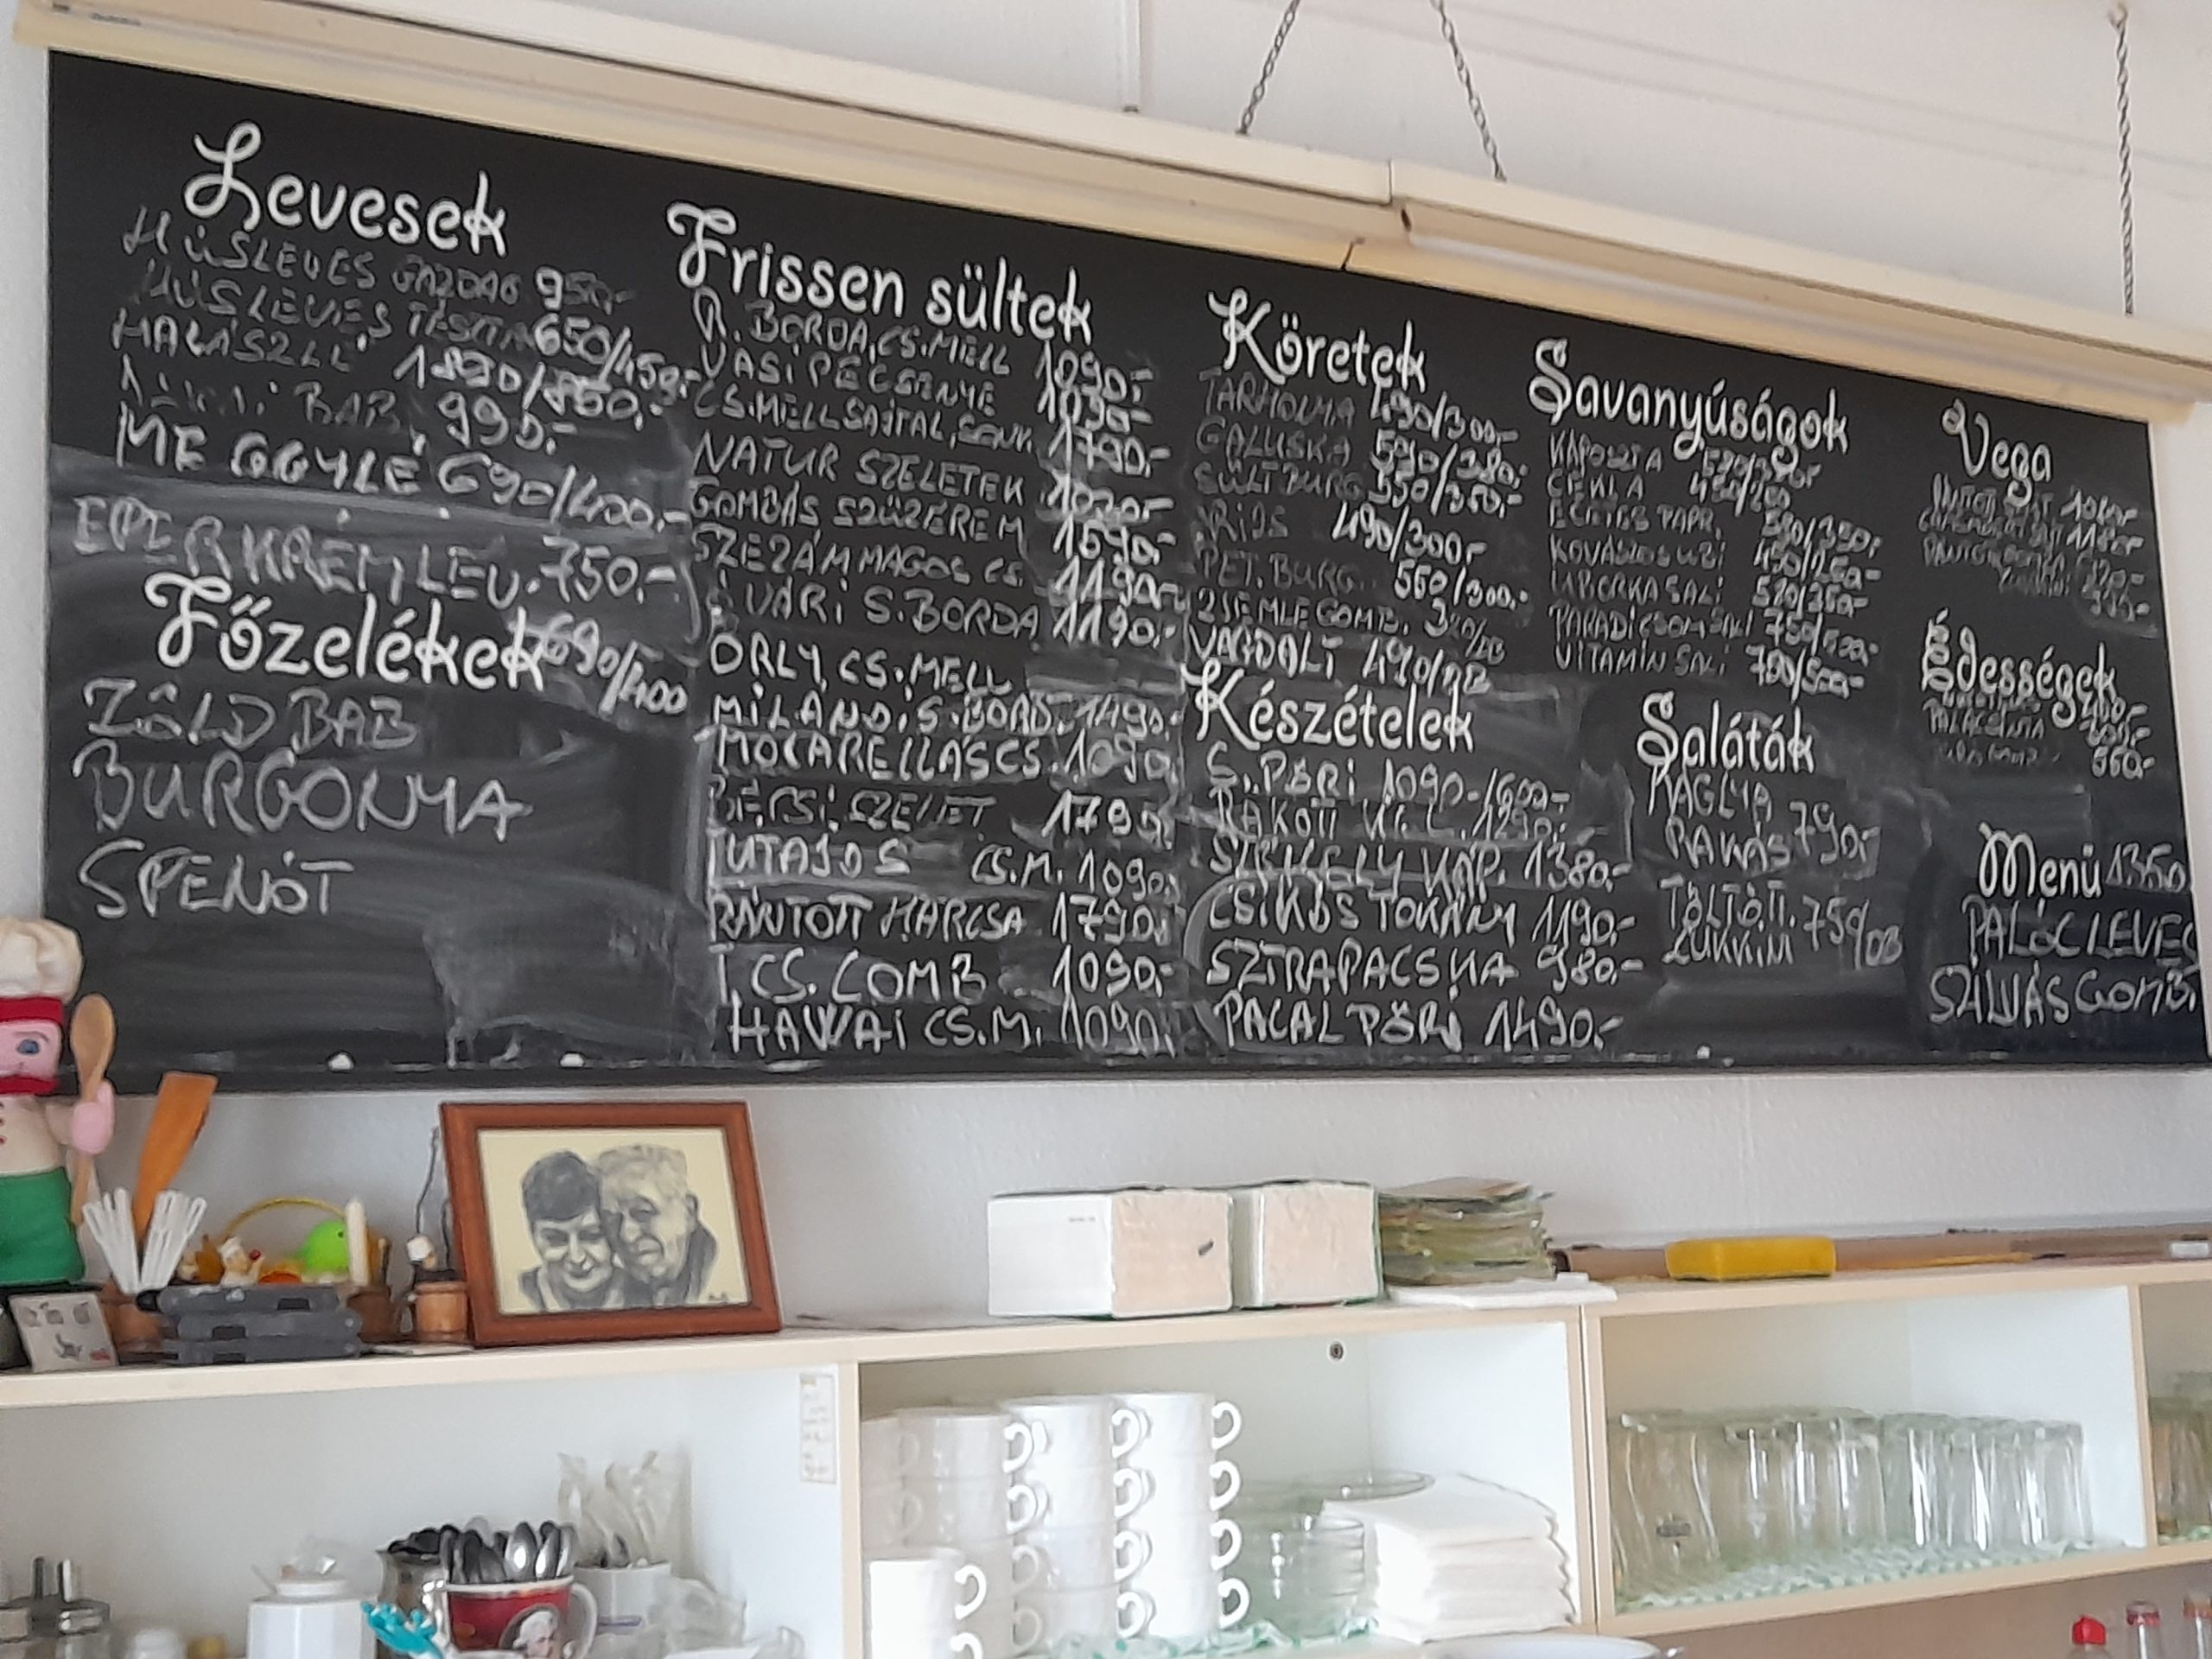 Levesek
HÚSLEVES GAZDAG 950,-
HÚSLEVES 650/450,-
HALÁSZLÉ
BAB 990,-
MEGGYLÉ 690/400,-
EPERKRÉMLEV. 750,-
Főzelékek 690/400
ZÖLDBAB
BURGONYA
SPENÓT
Frissen sültek
R. BORDA, CS. MELL 1090,-
VASI PECSENYE 1090,-
CS. MELL SAJTAL, SONK. 1790,-
NATUR SZELETEK 1090,-
GOMBÁS SZŰZÉREM 1690,-
SZEZÁMMAGOS CS. 1190,-
VÁRI S. BORDA 1190,-
ORLY CS. MELL
MILÁNÓ. S. BORD. 1490,-
MOCARELLÁS CS. 1090,-
BÉCSI SZELET 1790,-
TUTAJOS CS.M. 1090,-
RÁNTOTT HARCSA 1790,-
T. CS. COMB 1090,-
HAWAI CS.M. 1090,-
Köretek
TARHONYA 490/300,-
GALUSKA 590/380,-
SÜLT BURG 550/350,-
RIZS 490/300,-
PET. BURG. 550/300,-
ZSEMLEGOMB.
VAGDALT 490/DB
Készételek
S. PÖRI 1090,-/600,-
RAKOTT K.L. 1290,-
SZÉKELY KÁP. 1380,-
CSIKÓS TOKÁNY 1190,-
SZTRAPACSKA 980,-
PACAL PÖRI 1490,-
Savanyúságok
KÁPOSZTA
CÉKLA
ECETES PAPR. 590/350,-
KOVÁSZOS UBI 490/260,-
UBORKA SALI 520/350,-
PARADICSOM SALI 750/500,-
VITAMIN SALI 700/500,-
Saláták
NAGYMA
RAKÁS 790,-
TÖLTÖTT.
ZUKKINI 750/DB
Vega
Édességek
PALACSINTA
550,-
Menü 1350
PALÓCLEVES
SZILVÁSGOMB.